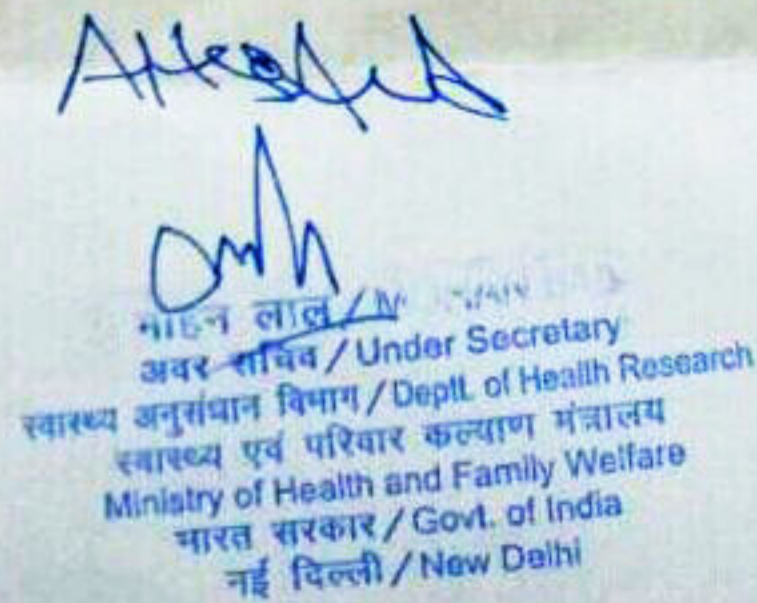 Attested
मोहन लाल /
अवर सचिव / Under Secretary
स्वास्थ्य अनुसंधान विभाग / Deptt. of Health Research
स्वास्थ्य एवं परिवार कल्याण मंत्रालय
Ministry of Health and Family Welfare
भारत सरकार / Govt. of India
नई दिल्ली / New Delhi